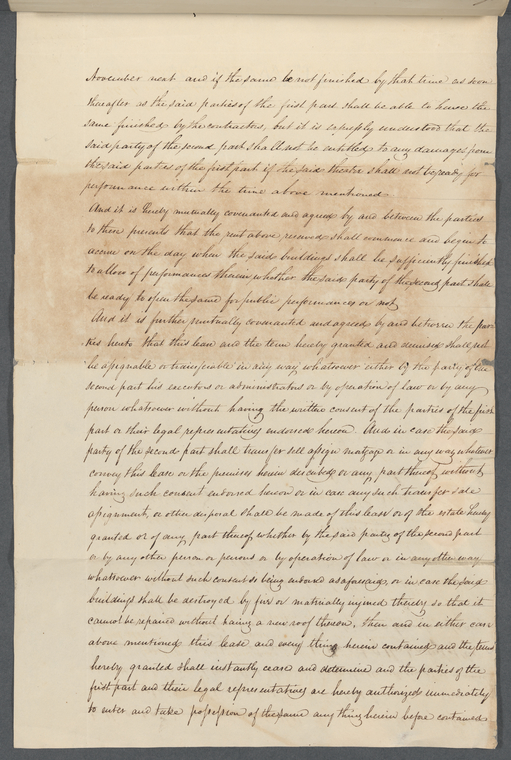 November next and if the same be not finished by that time as soon
thereafter as the said parties of the first part shall be able to have the
same finished by the contractors, but it is expressly understood that the
said party of the second part shall not be entitled to any damages from
the said parties of the first part if the said theatre shall not be ready for
performance within the time above mentioned
And it is hereby mutually covenanted and agreed by and between the parties
to these presents that the rent above reserved shall commence and begin to
accrue on the day when the said buildings shall be sufficiently finished
to allow of performances therein whether the said party of the second part shall
be ready to open the same for public performances or not
And it is further mutually covenanted and agreed by and between the par
ties hereto that this lease and the term hereby granted and demised shall not
be assignable or transferable in any way whatsoever either by the party of the
second part his executors or administrators or by operation of law or by any
person whatsoever without having the written consent of the parties of the first
part or their legal representatives endorsed hereon. And in case the said
party of the second part shall transfer sell assign mortgage or in any way whatever
convey this lease or the premises herein described or any part thereof without
having such consent endorsed hereon or in case any such transfer sale
assignment, or other disposal shall be made of this lease or of the estate hereby
granted or of any part thereof whether by the said party of the second part
or by any other person or persons or by operation of law or in any other way
whatsoever without such consent so being endorsed as aforesaid, or in case the said
buildings shall be destroyed by fire or materially injured thereby so that it
cannot be repaired without having a new roof thereon, then and in either case
above mentioned this lease and every thing herein contained and the term
hereby granted shall instantly cease and determine and the parties of the
first part and their legal representatives are hereby authorized immediately
to enter and take possession of the same any thing herein before contained